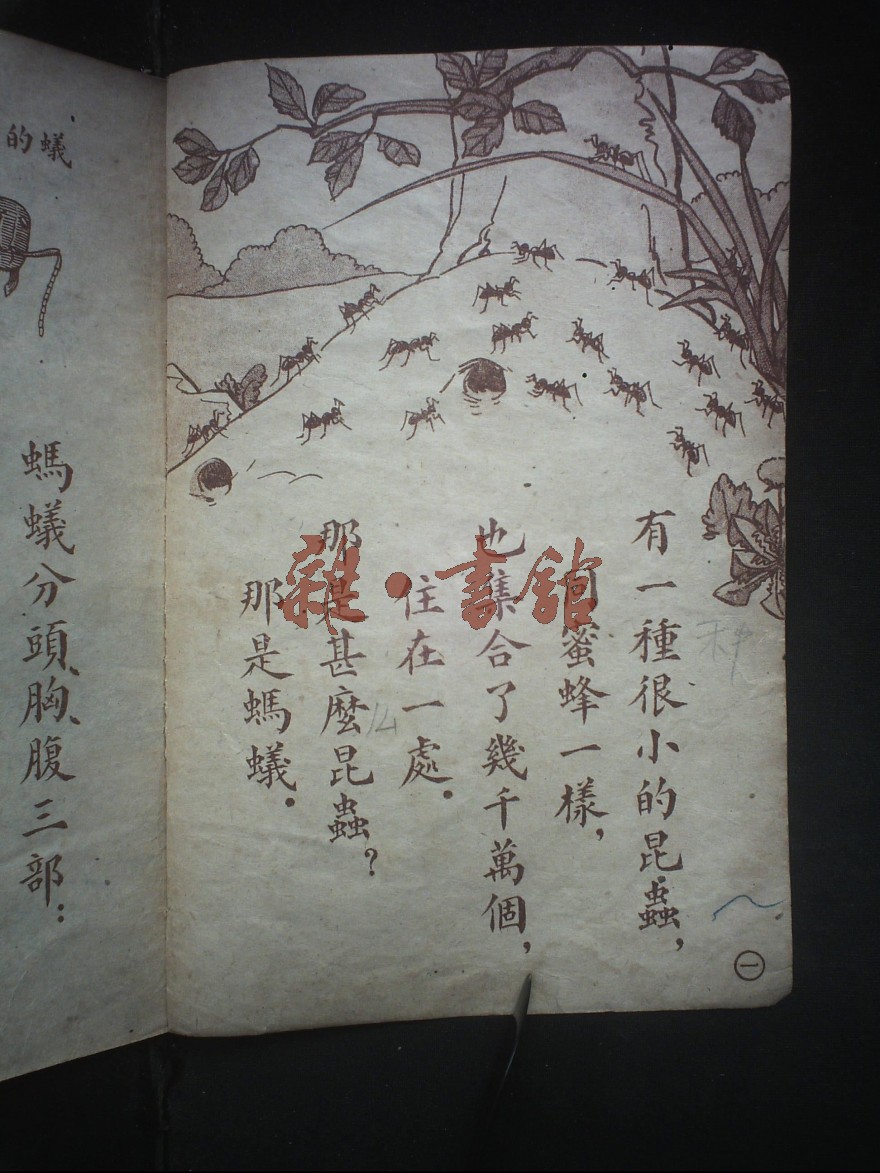 有一種很小的昆蟲,
同蜜蜂一樣,
也集合了幾千萬個,
住在一處.
那是甚麼昆蟲?
那是螞蟻.
㊀
种
么
雜·書館
蟻的
螞蟻分頭、胸、腹三部: